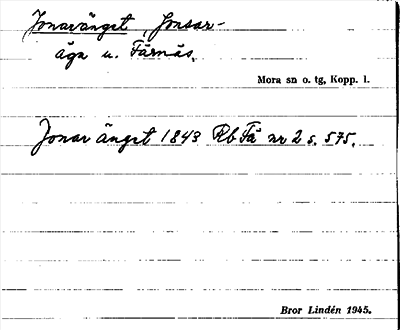 Jonaränget, Jonsar-
äga u. Färnäs.
Mora sn o. tg, Kopp. l.
Jonar änget 1843 Rb Fä nr 2 s. 575.
Bror Lindén 1945.